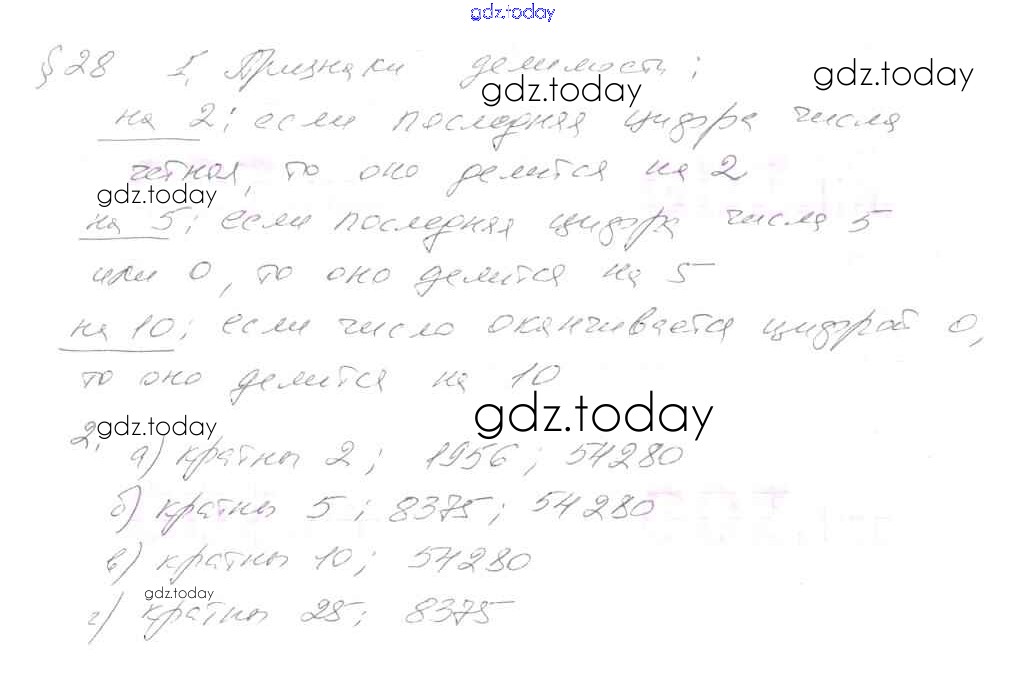 gdz.today
§28 1. Признаки делимости;
gdz.today gdz.today
на 2; если последняя цифра числа
четная, то оно делится на 2
gdz.today
на 5; если последняя цифра числа 5
или 0, то оно делится на 5
на 10; если число оканчивается цифрой 0,
то оно делится на 10
gdz.today gdz.today
2. а) кратны 2; 1956; 54280
б) кратны 5; 8375; 54280
в) кратны 10; 54280
gdz.today
г) кратны 25; 8375